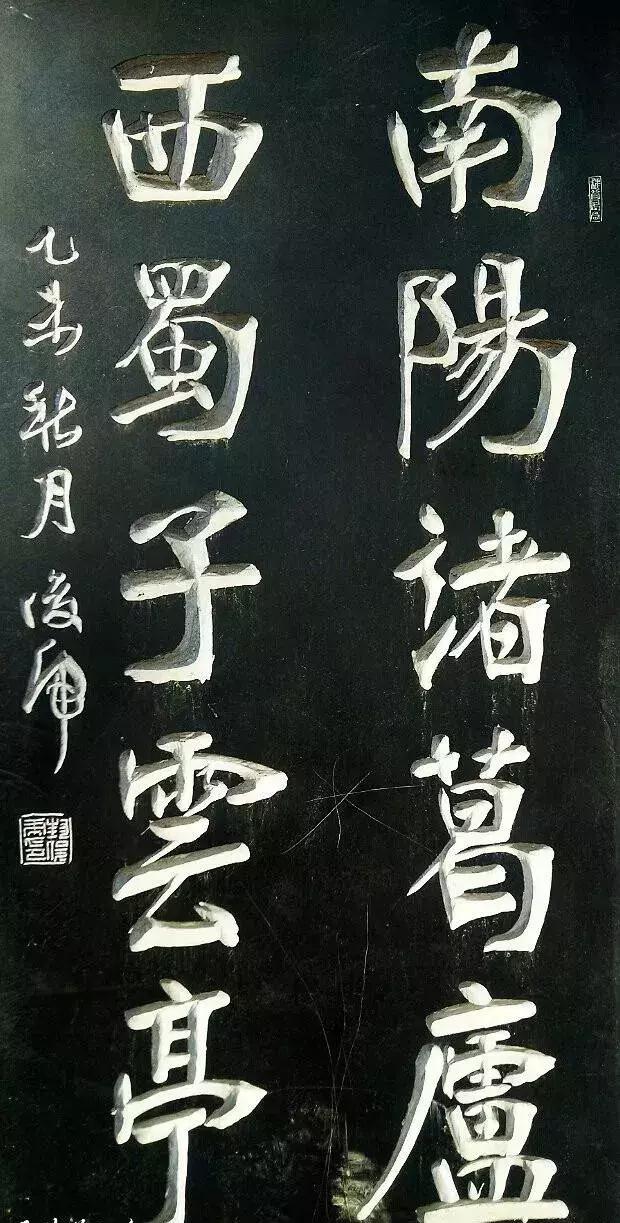 南陽諸葛廬
西蜀子雲亭
乙未秋月俊甫